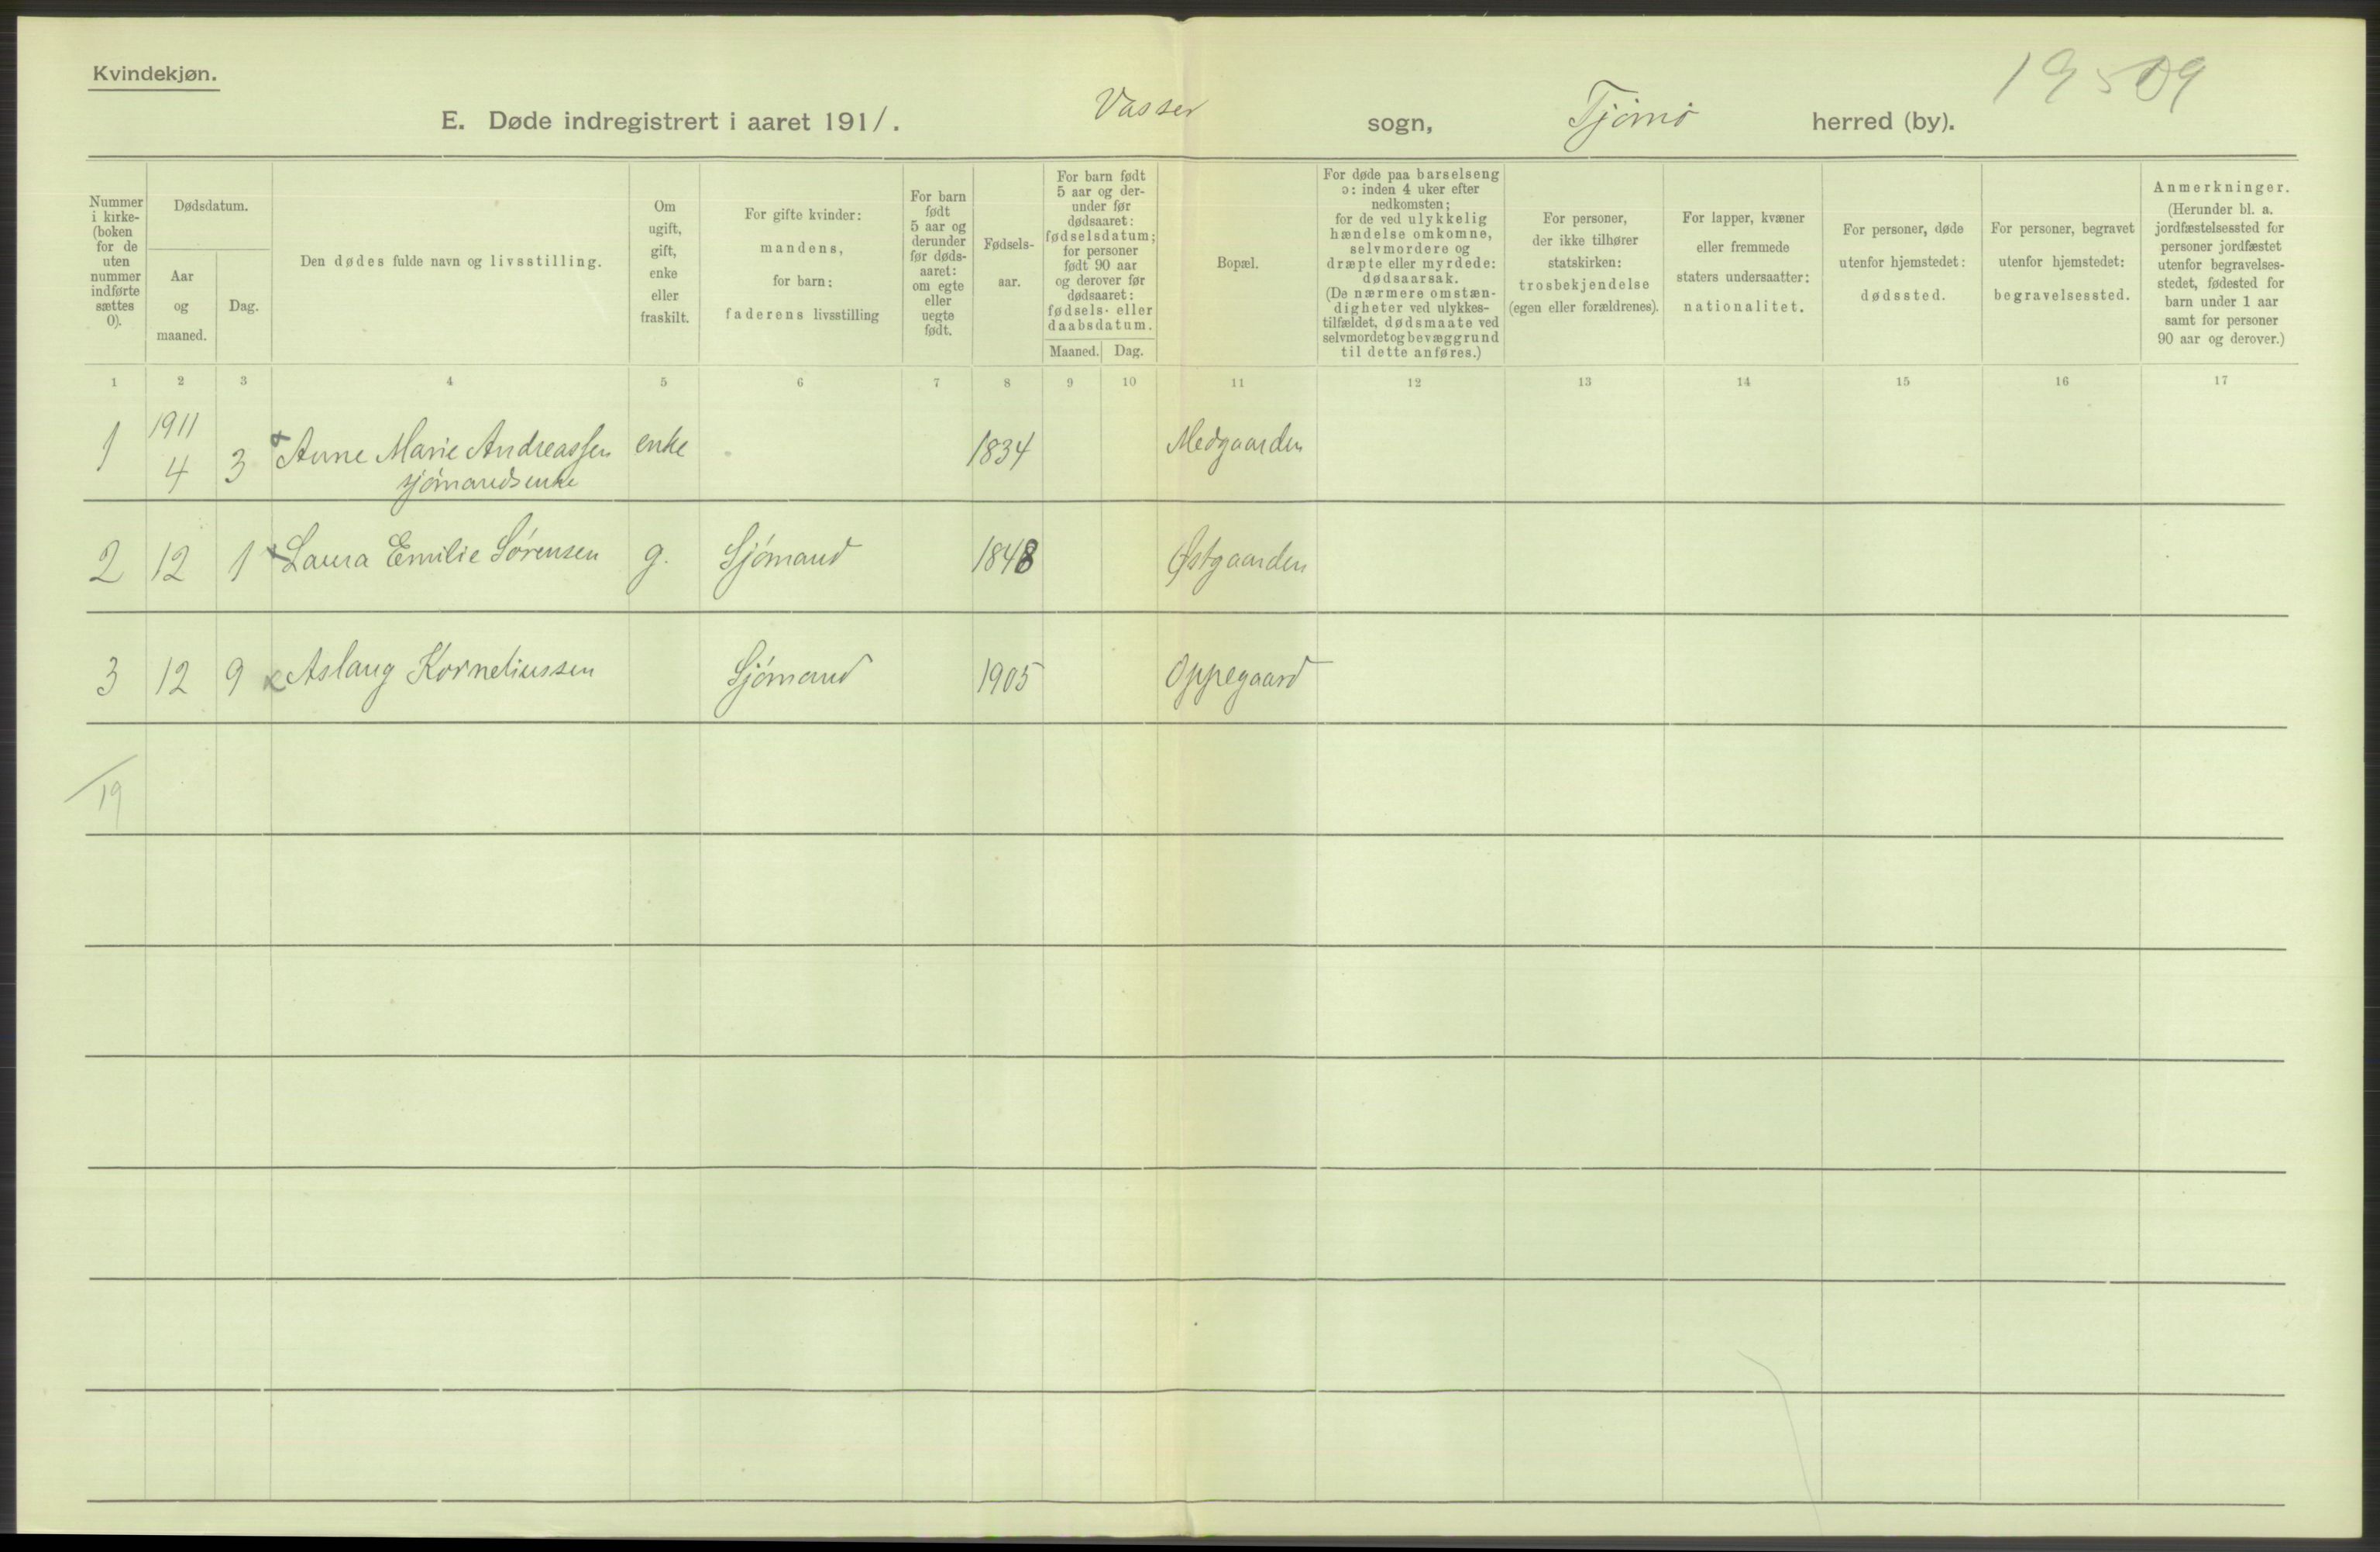 Kvindekjøn.
19 509
E. Døde indregistrert i aaret 1911. Vasser sogn, Tjømø herred (by).
Nummer i kirke- (boken for de uten nummer indførte sættes 0).
Dødsdatum.
Aar og maaned.
Dag.
Den dødes fulde navn og livsstilling.
Om ugift, gift, enke eller fraskilt.
For gifte kvinder: mandens, for barn: faderens livsstilling
For barn født 5 aar og derunder før døds- aaret: om egte eller uegte født.
Fødsels- aar.
For barn født 5 aar og der- under før dødsaaret: fødselsdatum; for personer født 90 aar og derover før dødsaaret: fødsels- eller daabsdatum.
Maaned. Dag.
Bopæl.
For døde paa barselseng ɔ: inden 4 uker efter nedkomsten; for de ved ulykkelig hændelse omkomne, selvmordere og dræpte eller myrdede: dødsaarsak. (De nærmere omstæn- digheter ved ulykkes- tilfældet, dødsmaate ved selvmordet og bevæggrund til dette anføres.)
For personer, der ikke tilhører statskirken: trosbekjendelse (egen eller forældrenes).
For lapper, kvæner eller fremmede staters undersaatter: nationalitet.
For personer, døde utenfor hjemstedet: dødssted.
For personer, begravet utenfor hjemstedet: begravelsessted.
Anmerkninger. (Herunder bl. a. jordfæstelsessted for personer jordfæstet utenfor begravelses- stedet, fødested for barn under 1 aar samt for personer 90 aar og derover.)
1 2 3 4 5 6 7 8 9 10 11 12 13 14 15 16 17
1911
1 4 3 Anne Marie Andreassen enke 1834 Medgaarden
sjömandsenke
2 12 1 Laura Emilie Sörensen g. Sjömand 1848 Østgaarden
3 12 9 Aslaug Korneliussen Sjömand 1905 Oppegaard
19